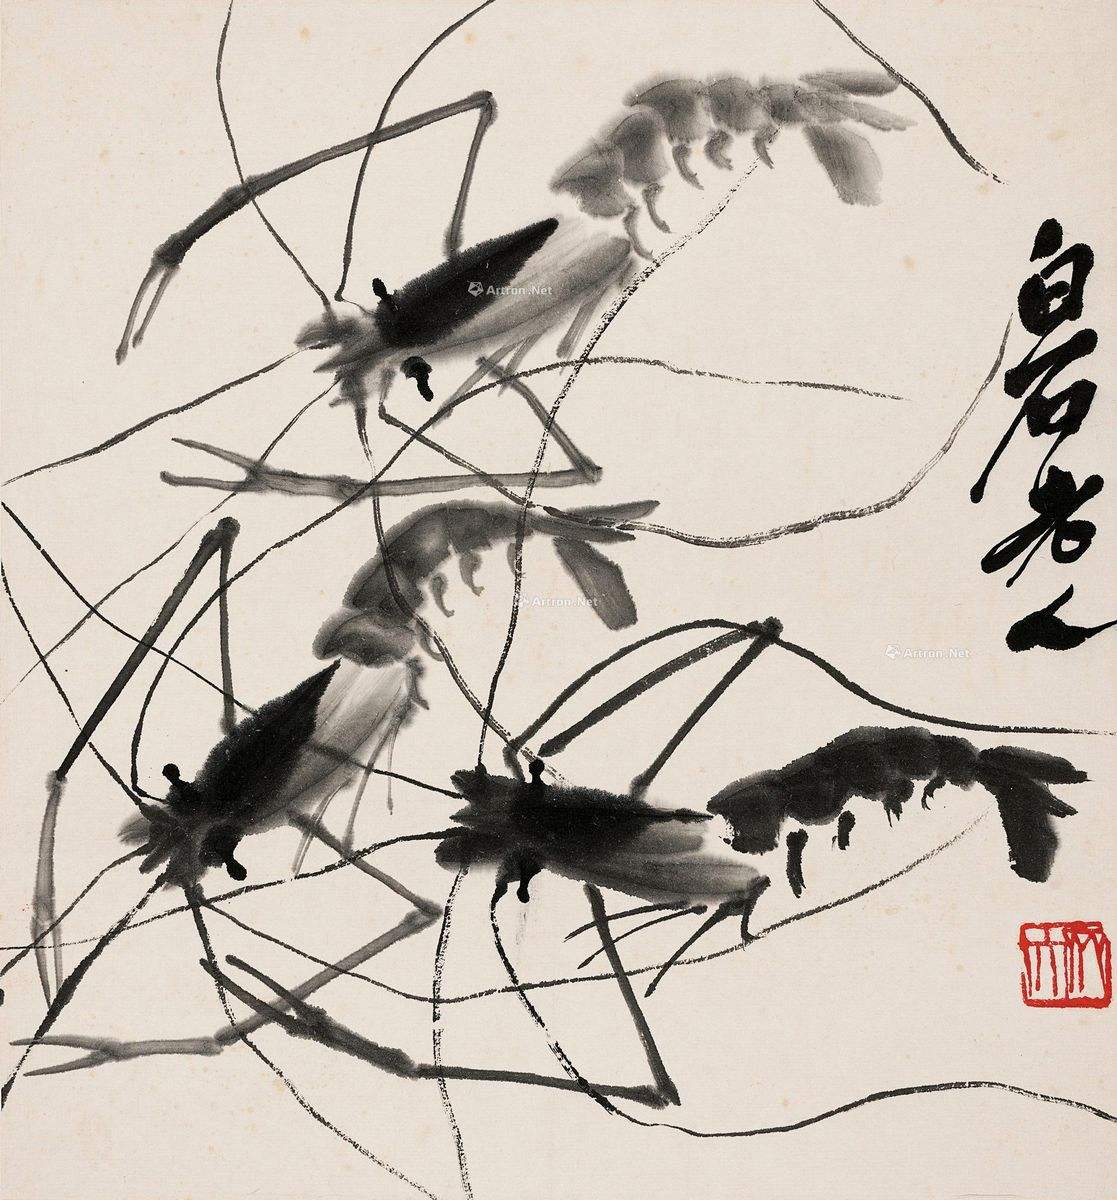 白石老人
Artron.Net
Artron.Net
Artron.Net